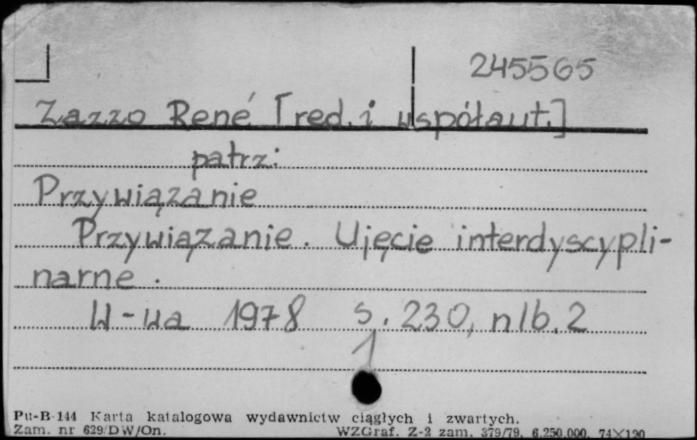 245565
Zazzo René [red. i współaut.]
patrz:
Przywiązanie
Przywiązanie. Ujęcie interdyscypli-
narne.
W-wa 1978 s. 230, nlb. 2
1
Pu-B-144 Karta katalogowa wydawnictw ciągłych i zwartych.
Zam. nr 629/DW/On. WZGraf. Z-2 zam. 379/79. 6.250.000. 74×120